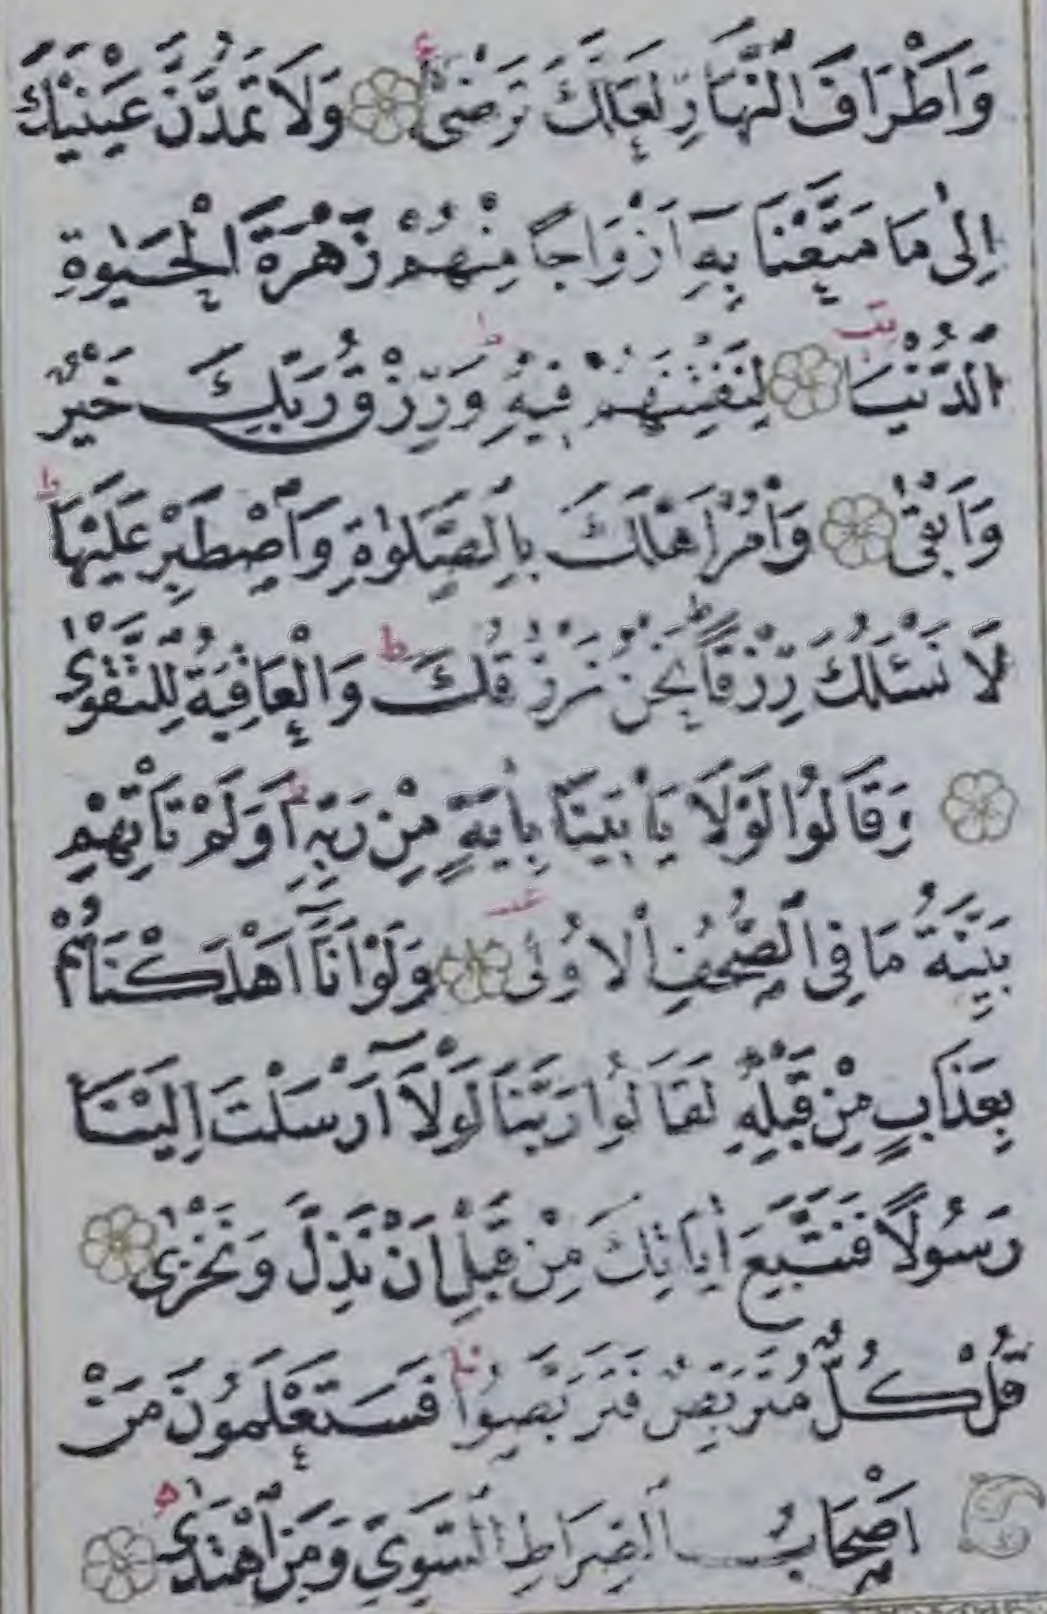 وَاَطْرَافَ النَّهَارِ لَعَلَّكَ تَرْضٰى وَلَا تَمُدَّنَّ عَيْنَيْكَ
اِلٰى مَا مَتَّعْنَا بِهٖٓ اَزْوَاجًا مِنْهُمْ زَهْرَةَ الْحَيٰوةِ
الدُّنْيَا لِنَفْتِنَهُمْ فِيهِ وَرِزْقُ رَبِّكَ خَيْرٌ
وَاَبْقٰى وَأْمُرْ اَهْلَكَ بِالصَّلٰوةِ وَاصْطَبِرْ عَلَيْهَا
لَا نَسْئَلُكَ رِزْقًا نَحْنُ نَرْزُقُكَ وَالْعَاقِبَةُ لِلتَّقْوٰى
وَقَالُوا لَوْلَا يَأْتِينَا بِاٰيَةٍ مِنْ رَبِّهِ اَوَلَمْ تَأْتِهِمْ
بَيِّنَةُ مَا فِي الصُّحُفِ الْاُولٰى وَلَوْ اَنَّٓا اَهْلَكْنَاهُمْ
بِعَذَابٍ مِنْ قَبْلِهٖ لَقَالُوا رَبَّنَا لَوْلَٓا اَرْسَلْتَ اِلَيْنَا
رَسُولًا فَنَتَّبِعَ اٰيَاتِكَ مِنْ قَبْلِ اَنْ نَذِلَّ وَنَخْزٰى
قُلْ كُلٌّ مُتَرَبِّصٌ فَتَرَبَّصُوا فَسَتَعْلَمُونَ مَنْ
اَصْحَابُ الصِّرَاطِ السَّوِيِّ وَمَنِ اهْتَدٰى